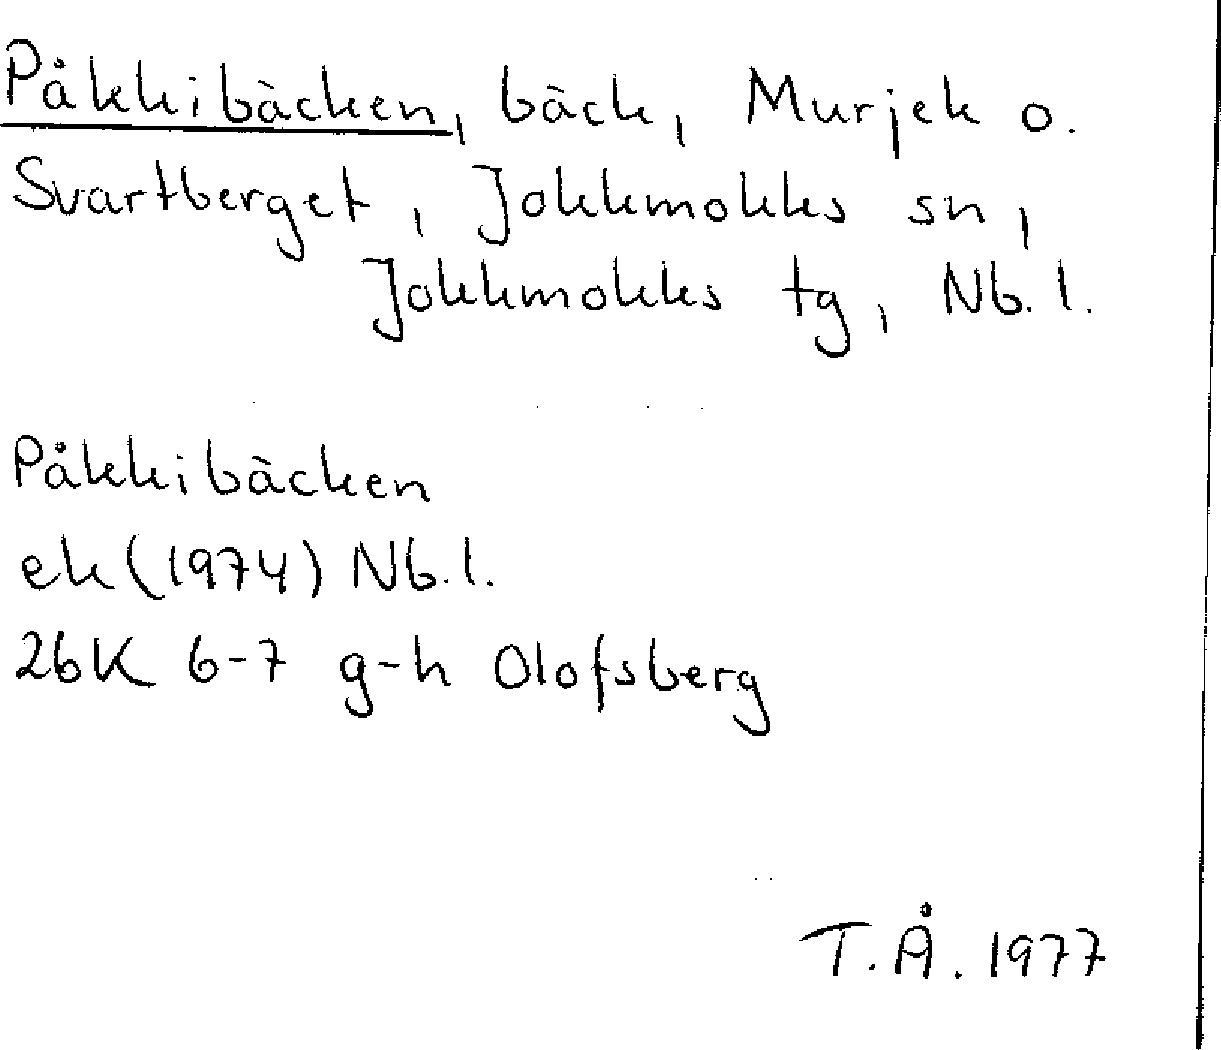 Påkkibäcken, bäck, Murjek o.
Svartberget, Jokkmokks sn,
Jokkmokks tg, Nb. l.
Påkkibäcken
ek (1974) Nb. l.
26K 6-7 g-h Olofsberg
T.Å. 1977